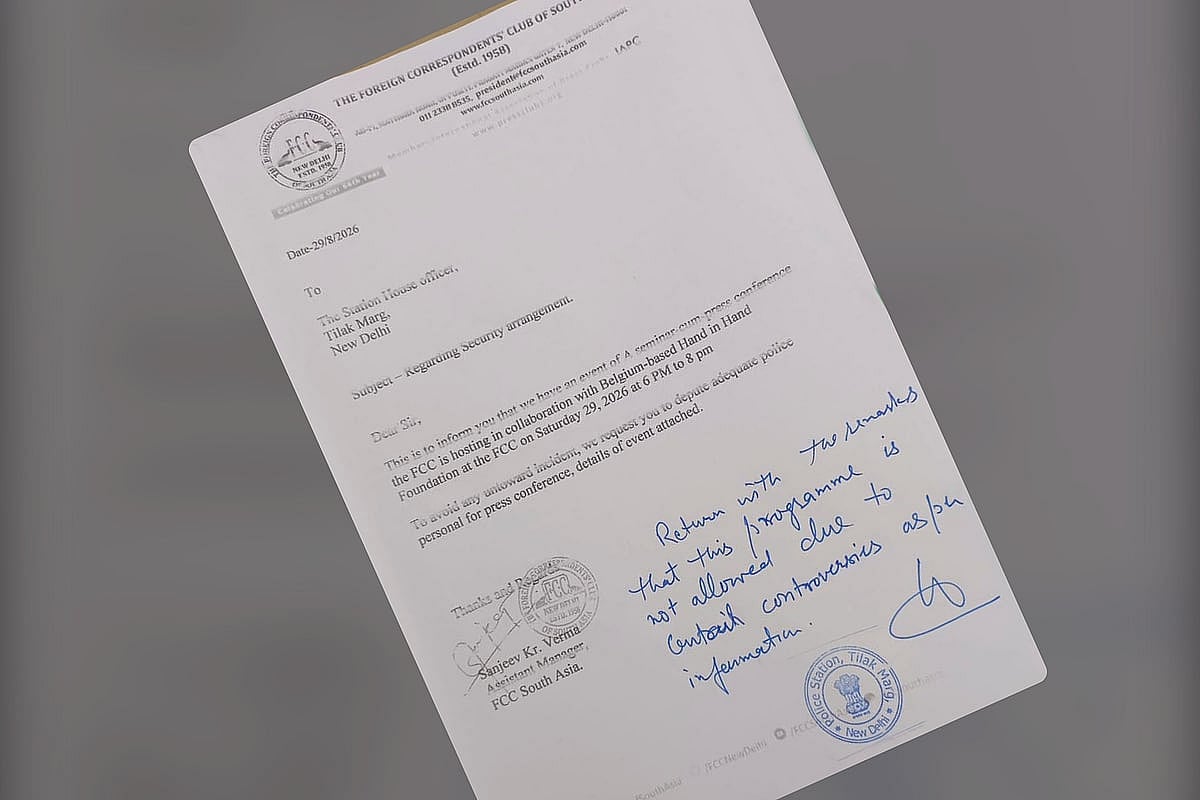 THE FOREIGN CORRESPONDENTS' CLUB OF SOUTH
(Estd. 1958)
AB-19, MATHURA ROAD, OPPOSITE PRAGATI MAIDAN GATE# 7, NEW DELHI-110001
011 2338 8535, president@fccsouthasia.com
www.fccsouthasia.com
Member: International Association of Press Clubs - IAPC
www.pressclubs.org
THE FOREIGN CORRESPONDENTS' CLUB
FCC
NEW DELHI
ESTD. 1958
OF SOUTH ASIA
Celebrating Our 64th Year
Date-29/8/2026
To
The Station House officer,
Tilak Marg,
New Delhi
Subject – Regarding Security arrangement.
Dear Sir,
This is to inform you that we have an event of A seminar-cum-press conference
the FCC is hosting in collaboration with Belgium-based Hand in Hand
Foundation at the FCC on Saturday 29, 2026 at 6 PM to 8 pm
To avoid any untoward incident, we request you to depute adequate police
personal for press conference, details of event attached.
Return with the remarks
that this programme is
not allowed due to
certain controversies as per
information.
Thanks and Regards
FCC
NEW DELHI
ESTD. 1958
OF SOUTH ASIA
Sanjeev Kr. Verma
Assistant Manager,
FCC South Asia.
Police Station, Tilak Marg,
New Delhi
/FCCNewDelhi